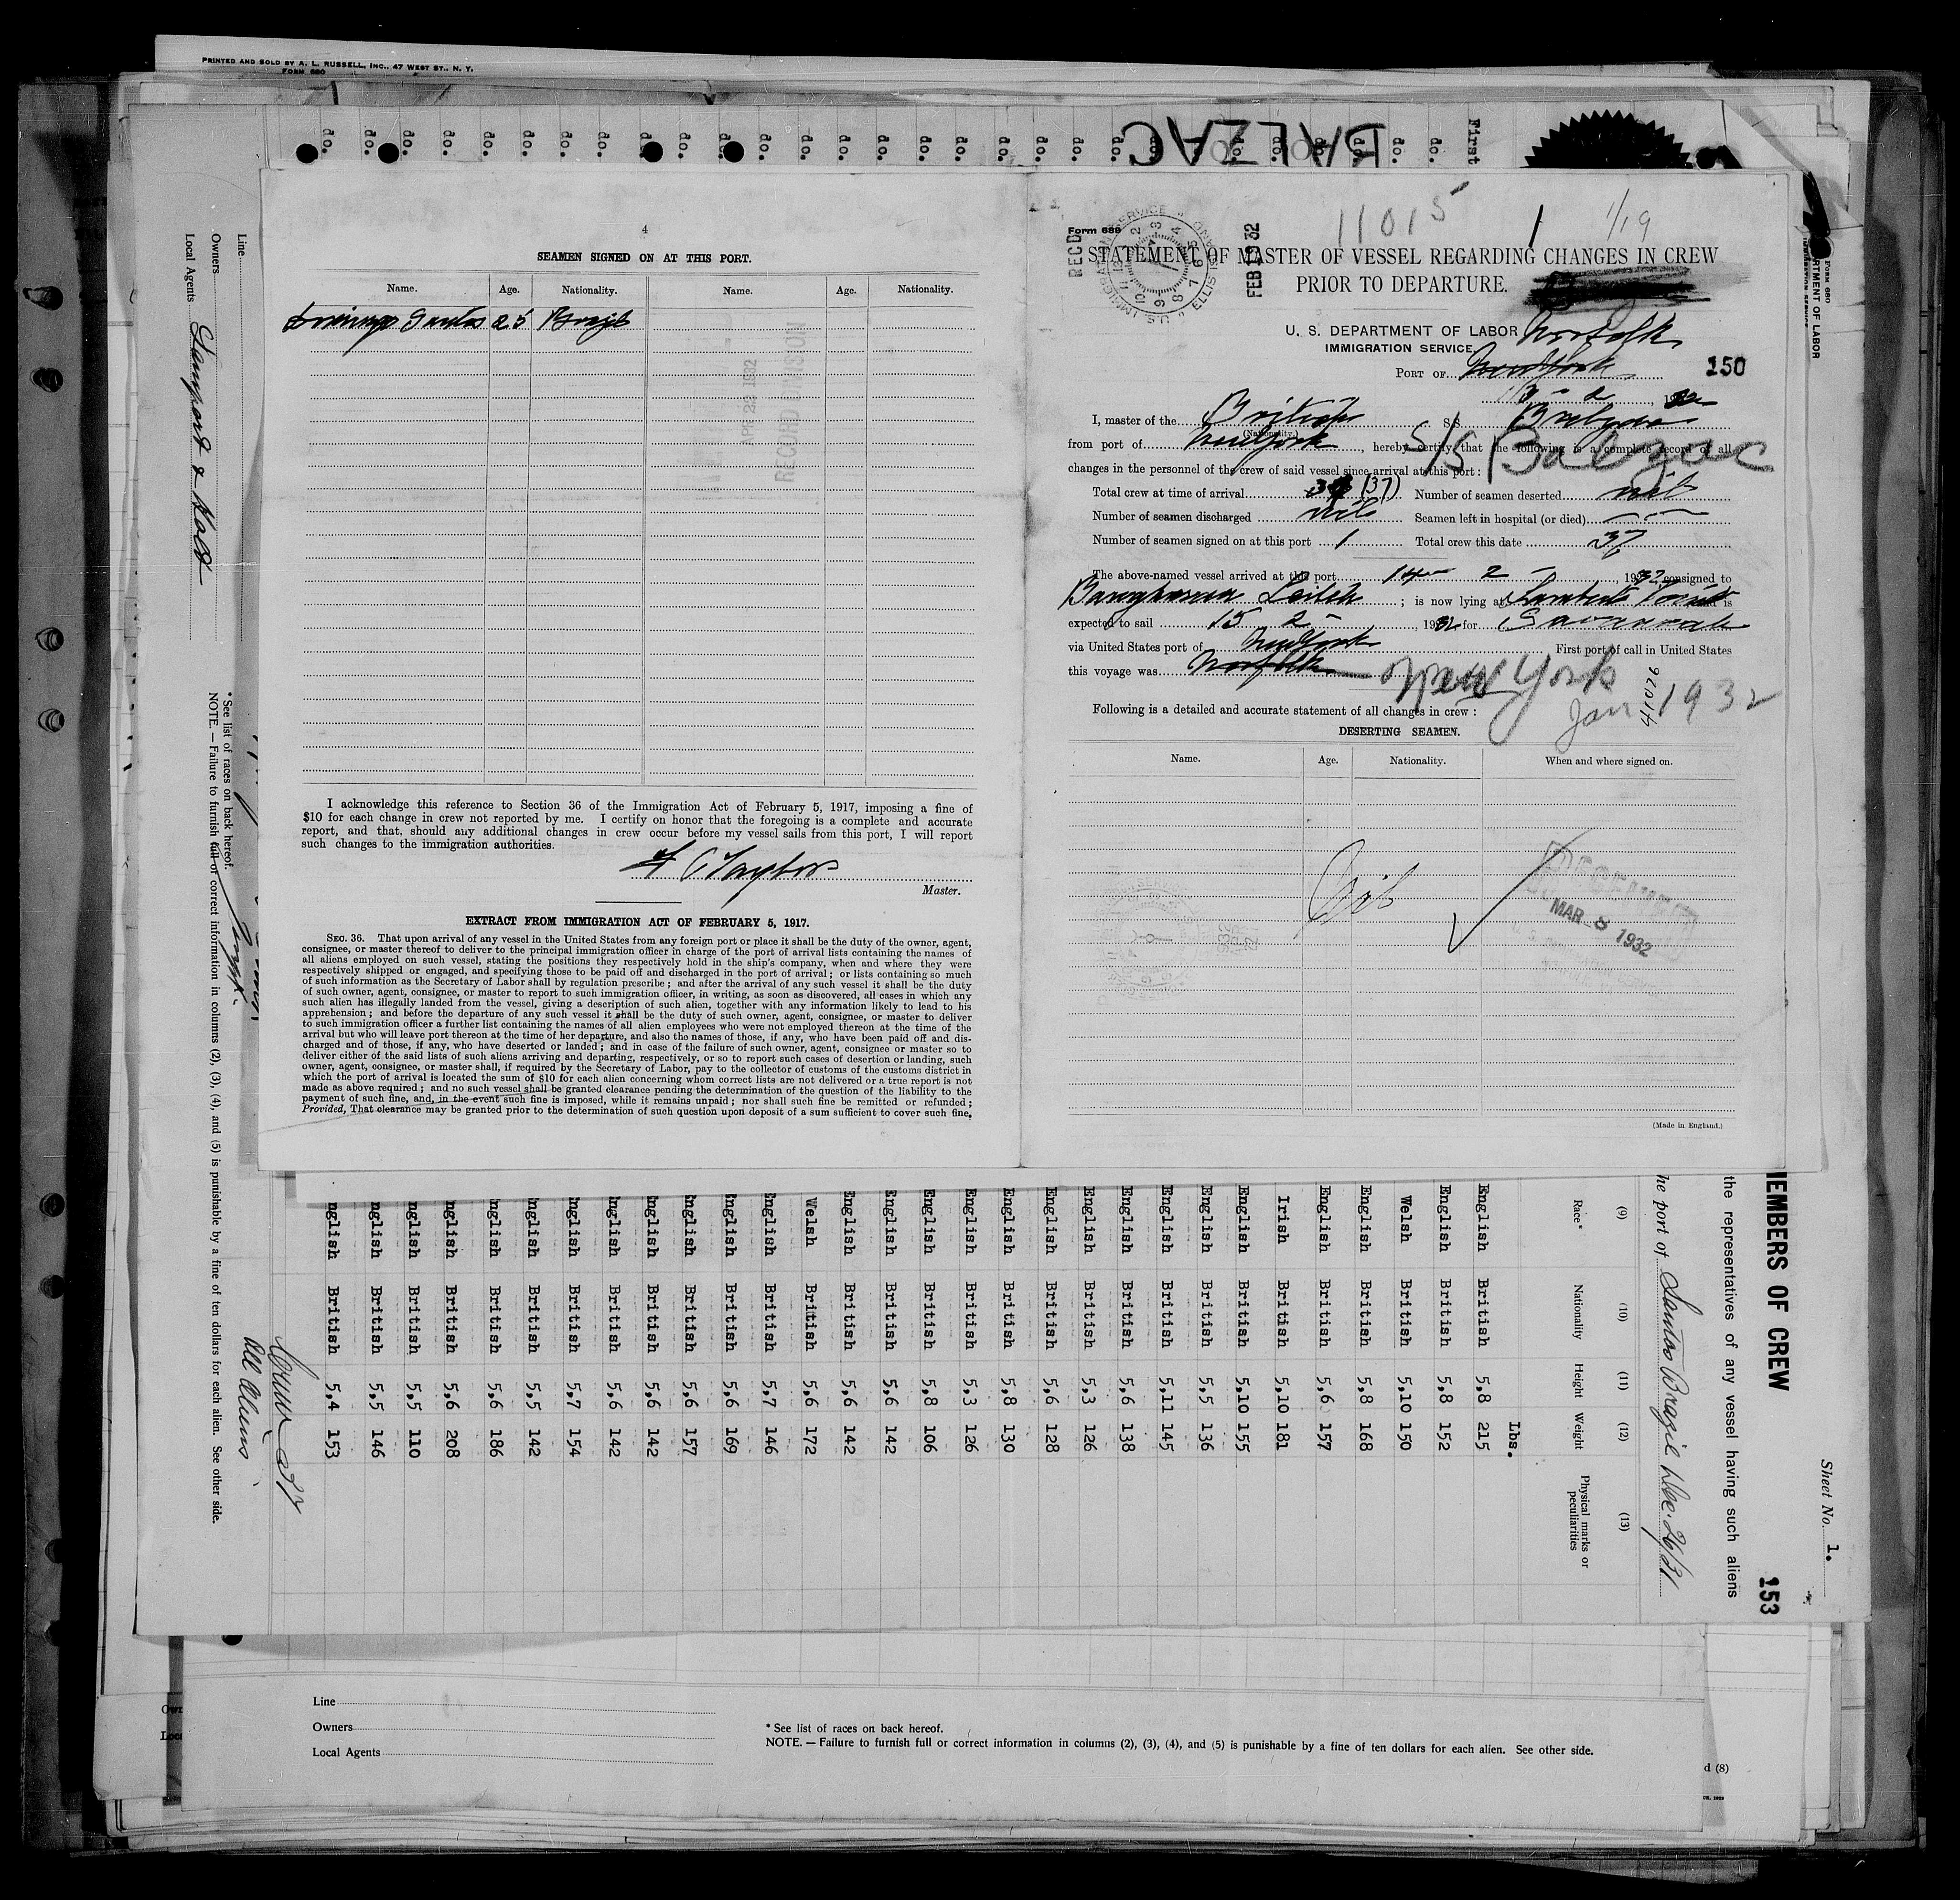 PRINTED AND SOLD BY A. L. RUSSELL, INC., 47 WEST ST., N. Y.
FORM 680
do. do. do. do. do. do. do. do. do. do. do. do. do. do. do. do. do. do. do. do. do. do. do. do. do. do. do. do. do. First
BALZAC
4
SEAMEN SIGNED ON AT THIS PORT.
Name. Age. Nationality. Name. Age. Nationality.
Santos 25 Brazil
APR 22 1932
RECORD DIVISION
I acknowledge this reference to Section 36 of the Immigration Act of February 5, 1917, imposing a fine of
$10 for each change in crew not reported by me. I certify on honor that the foregoing is a complete and accurate
report, and that, should any additional changes in crew occur before my vessel sails from this port, I will report
such changes to the immigration authorities.
Taylor
Master.
EXTRACT FROM IMMIGRATION ACT OF FEBRUARY 5, 1917.
SEC. 36. That upon arrival of any vessel in the United States from any foreign port or place it shall be the duty of the owner, agent,
consignee, or master thereof to deliver to the principal immigration officer in charge of the port of arrival lists containing the names of
all aliens employed on such vessel, stating the positions they respectively hold in the ship's company, when and where they were
respectively shipped or engaged, and specifying those to be paid off and discharged in the port of arrival; or lists containing so much
of such information as the Secretary of Labor shall by regulation prescribe; and after the arrival of any such vessel it shall be the duty
of such owner, agent, consignee, or master to report to such immigration officer, in writing, as soon as discovered, all cases in which any
such alien has illegally landed from the vessel, giving a description of such alien, together with any information likely to lead to his
apprehension; and before the departure of any such vessel it shall be the duty of such owner, agent, consignee, or master to deliver
to such immigration officer a further list containing the names of all alien employees who were not employed thereon at the time of the
arrival but who will leave port thereon at the time of her departure, and also the names of those, if any, who have been paid off and dis-
charged and of those, if any, who have deserted or landed; and in case of the failure of such owner, agent, consignee or master so to
deliver either of the said lists of such aliens arriving and departing, respectively, or so to report such cases of desertion or landing, such
owner, agent, consignee, or master shall, if required by the Secretary of Labor, pay to the collector of customs of the customs district in
which the port of arrival is located the sum of $10 for each alien concerning whom correct lists are not delivered or a true report is not
made as above required; and no such vessel shall be granted clearance pending the determination of the question of the liability to the
payment of such fine, and, in the event such fine is imposed, while it remains unpaid; nor shall such fine be remitted or refunded;
Provided, That clearance may be granted prior to the determination of such question upon deposit of a sum sufficient to cover such fine.
11015 1 1/19
Form 689
REC'D
U.S. IMMIGRATION SERVICE ELLIS ISLAND
STATEMENT OF MASTER OF VESSEL REGARDING CHANGES IN CREW
PRIOR TO DEPARTURE.
U. S. DEPARTMENT OF LABOR Norfolk
IMMIGRATION SERVICE
PORT OF New York 150
I, master of the British SS
(Nationality.)
from port of New York, hereby certify that the following is a complete record of all
S/S Balzac
changes in the personnel of the crew of said vessel since arrival at this port:
Total crew at time of arrival (37) Number of seamen deserted nil
Number of seamen discharged nil Seamen left in hospital (or died)
Number of seamen signed on at this port 1 Total crew this date 37
The above-named vessel arrived at this port 14 2 1932 consigned to
Leitch; is now lying at Lamberts Point and is
expected to sail 15 2 1932 for Savannah
via United States port of New York First port of call in United States
this voyage was Norfolk New York
Jan 1932
Following is a detailed and accurate statement of all changes in crew:
DESERTING SEAMEN.
Name. Age. Nationality. When and where signed on.
Nil
RECEIVED
MAR 8 1932
(Made in England.)
Line
Owners
Local Agents Lamport & Holt
* See list of races on back hereof.
NOTE. — Failure to furnish full or correct information in columns (2), (3), (4), and (5) is punishable by a fine of ten dollars for each alien. See other side.
Form 680
Sheet No. 1.
153
MEMBERS OF CREW
the representatives of any vessel having such aliens
he port of Santos Brazil Dec. 26/31
(9) (10) (11) (12) (13)
Race* Nationality Height Weight Physical marks or peculiarities
Lbs.
English British 5,8 215
English British 5,8 152
Welsh British 5,10 150
English British 5,8 168
English British 5,6 157
Irish British 5,10 181
English British 5,10 155
English British 5,5 136
English British 5,11 145
English British 5,6 138
English British 5,3 126
English British 5,6 128
English British 5,8 130
English British 5,3 126
English British 5,8 106
English British 5,6 142
English British 5,6 142
Welsh British 5,6 172
English British 5,7 146
English British 5,6 169
English British 5,6 157
English British 5,6 142
nglish British 5,6 142
nglish British 5,7 154
nglish British 5,5 142
nglish British 5,6 186
nglish British 5,6 208
nglish British 5,5 110
nglish British 5,5 146
nglish British 5,4 153
all aliens
Line
Owners
Local Agents
* See list of races on back hereof.
NOTE. — Failure to furnish full or correct information in columns (2), (3), (4), and (5) is punishable by a fine of ten dollars for each alien. See other side.
d (8)